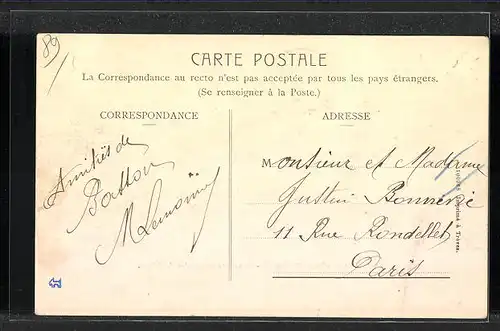 89
CARTE POSTALE
La Correspondance au recto n'est pas acceptée par tous les pays étrangers.
(Se renseigner à la Poste.)
CORRESPONDANCE
ADRESSE
Amitiés de
Batton
M Lemoine
Monsieur et Madame
Justin Bonnerie
11 Rue Rondellet
Paris
Imprimé à Trèves.